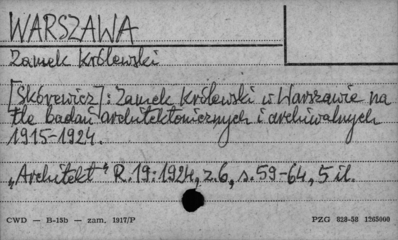 WARSZAWA
Zamek Królewski
[Skórewicz]: Zamek Królewski w Warszawie na
tle badań architektonicznych i archiwalnych
1915-1924.
„Architekt" R.19:1924, z.6, s.59-64, 5 il.
CWD — B-15b — zam. 1917/P PZG 828-58 1265000